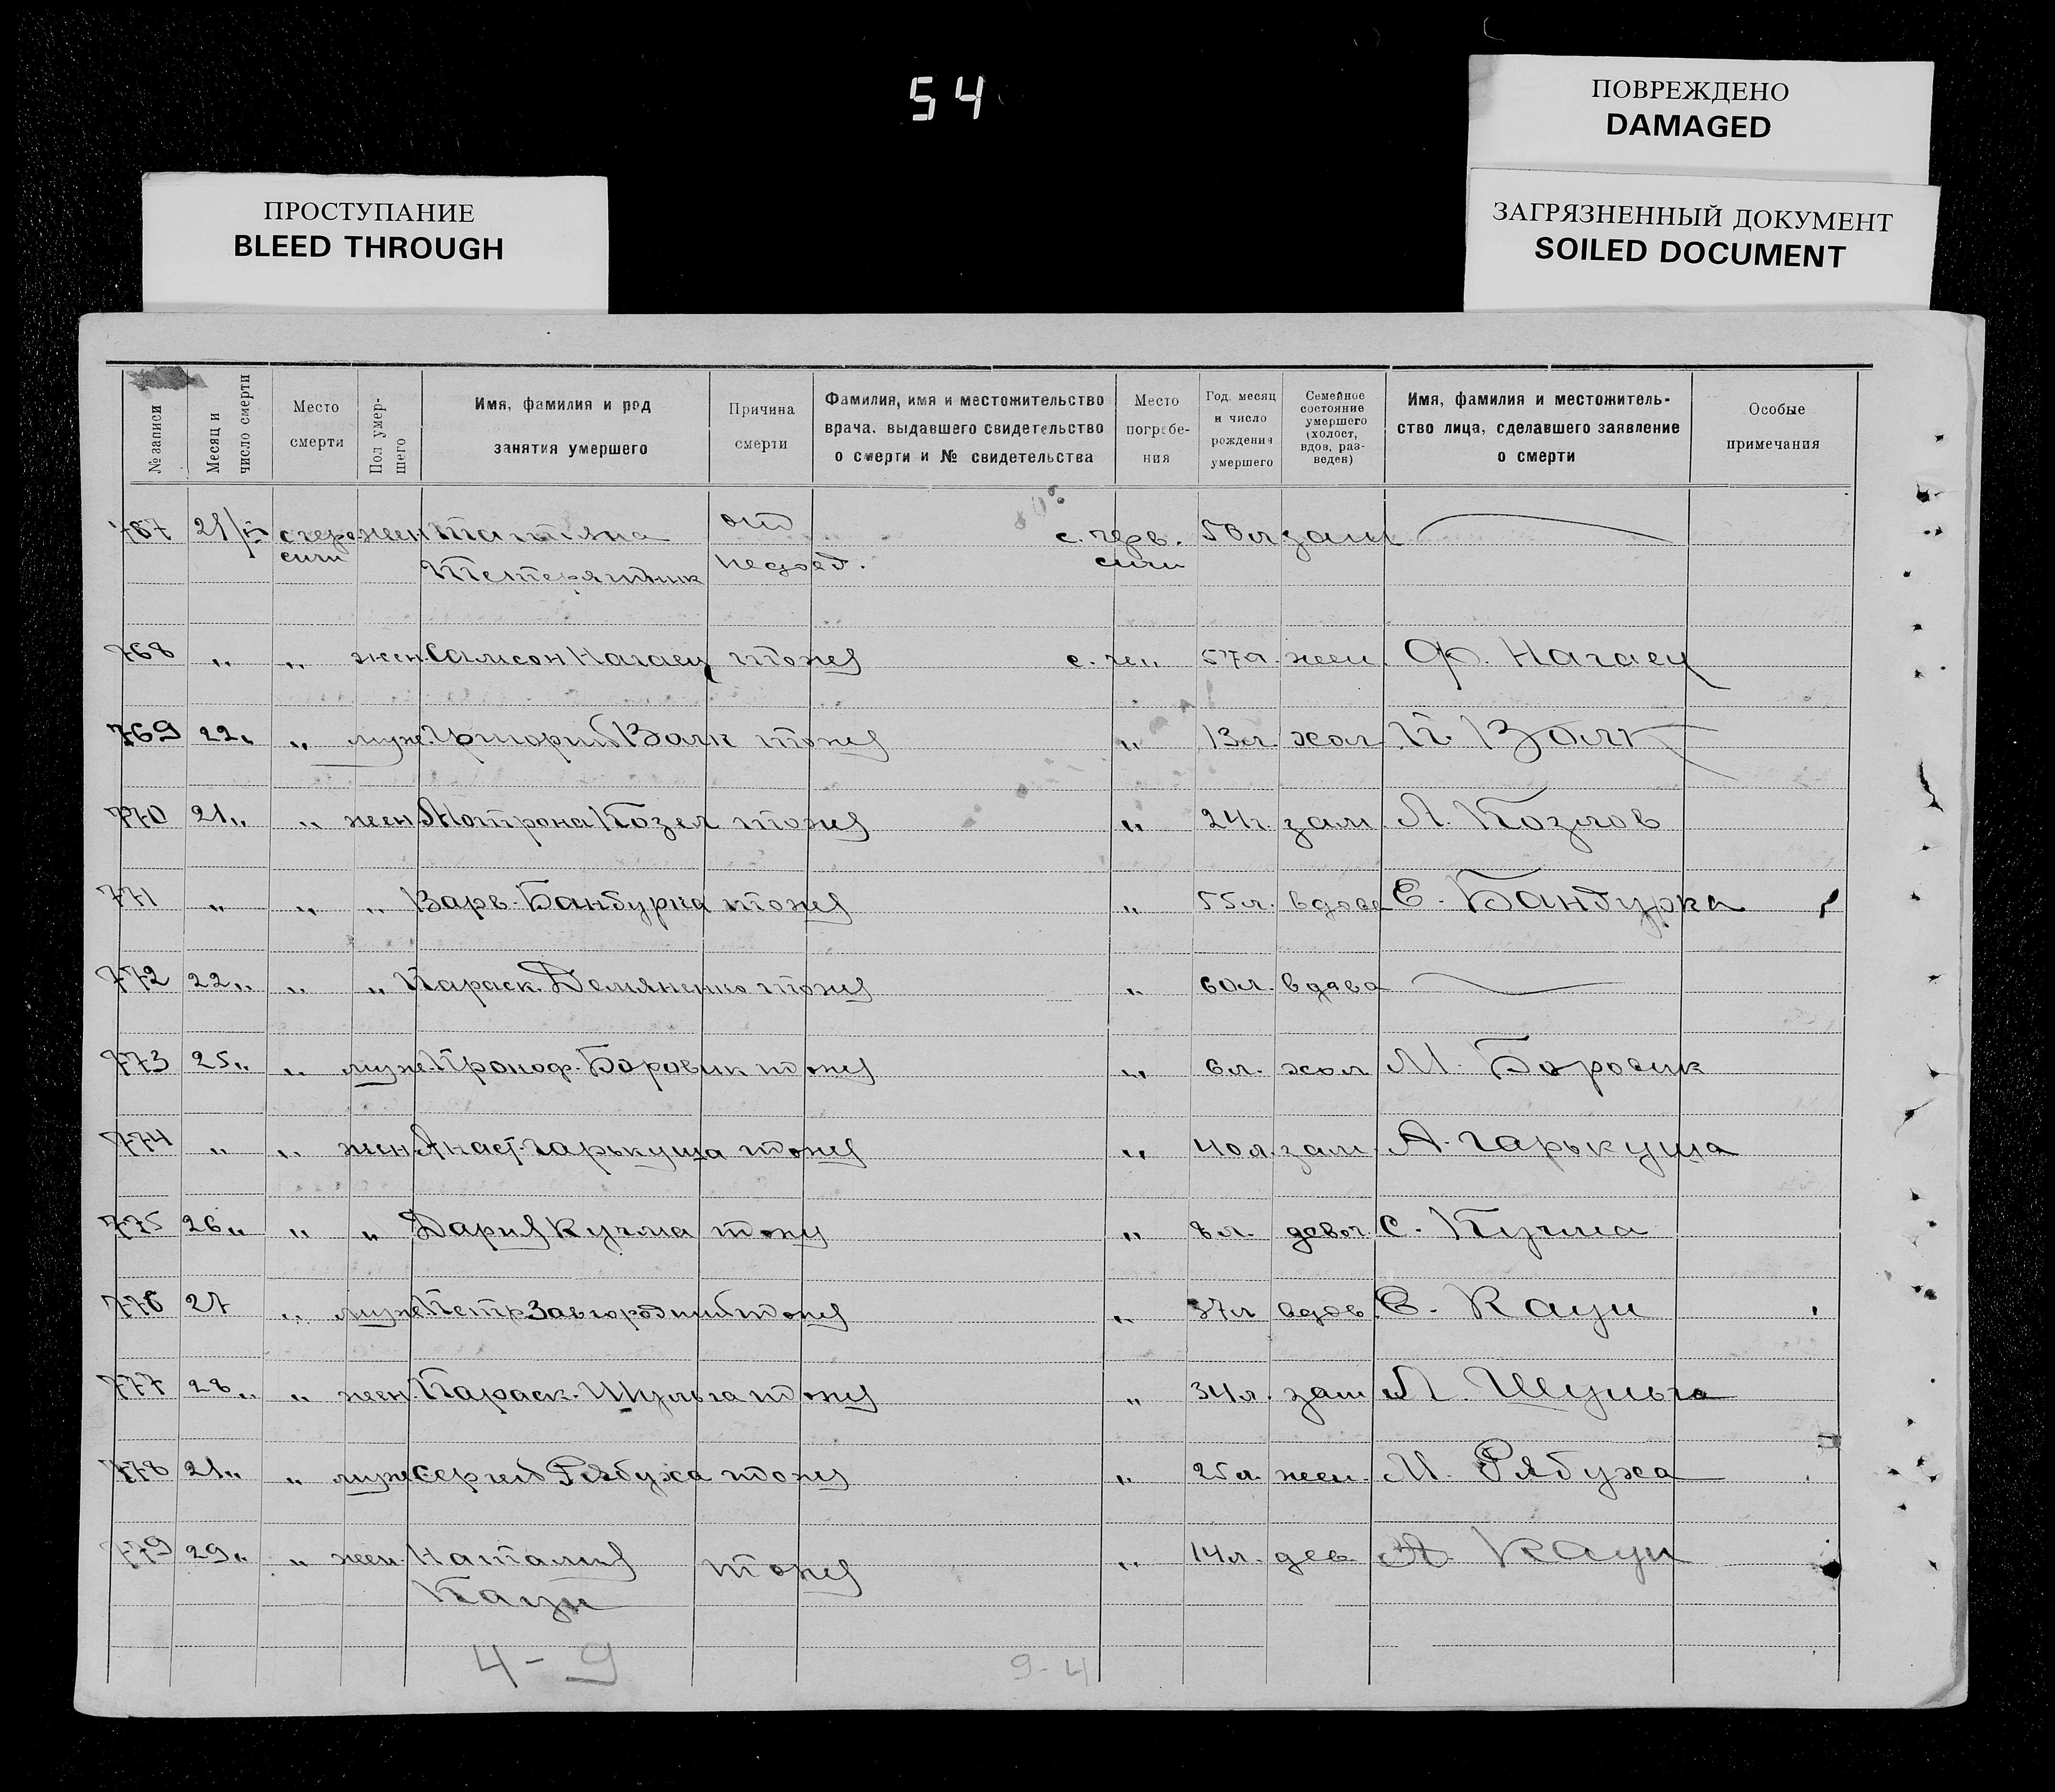 54
ПОВРЕЖДЕНО
DAMAGED
ЗАГРЯЗНЕННЫЙ ДОКУМЕНТ
SOILED DOCUMENT
ПРОСТУПАНИЕ
BLEED THROUGH
№ записи
Месяц и
число смерти
Место
смерти
Пол умер-
шего
Имя, фамилия и род
занятия умершего
Причина
смерти
Фамилия, имя и местожительство
врача, выдавшего свидетельство
о смерти и № свидетельства
Место
погребе-
ния
Год, месяц
и число
рождения
умершего
Семейное
состояние
умершего
(холост,
вдов, раз-
веден)
Имя, фамилия и местожитель-
ство лица, сделавшего заявление
о смерти
Особые
примечания
767 21/V жен от с. черв. 50л зам
сичи недоед. сичи
768 „ „ жен Самсон Нагаец тоже с. че„ 57л. жен. Ф. Нагаец
769 22„ „ муж. Григорий Вовк тоже „ 13л. хол П. Вовк
770 21„ „ жен Мотрона Козел тоже „ 24г. зам. Л. Козлов
771 „ „ „ Варв. Бандурка тоже „ 55л. вдова Е. Бандурка
772 22„ „ „ Параск. Демяненко тоже „ 60л. вдова
773 25„ „ муж. Прокоф. Боровик тоже „ 6л. хол М. Боровик
774 „ „ жен Анаст. гарькуша тоже „ 40л. зам А. гарькуша
775 26„ „ „ Дария Кучма тоже „ 8л. девоч. С. Кучма
776 27 „ муж Петр Завгородний тоже „ 37л вдов Е. Кауи
777 28„ „ жен. Параск. Шульга тоже „ 34л. зам Л. Шульга
778 21„ „ муж Сергий Рябуха тоже „ 25л. жен. М. Рябуха
779 29„ „ жен. Наталия тоже „ 14л. дев А. Кауи
Кауи
4-9 9-4